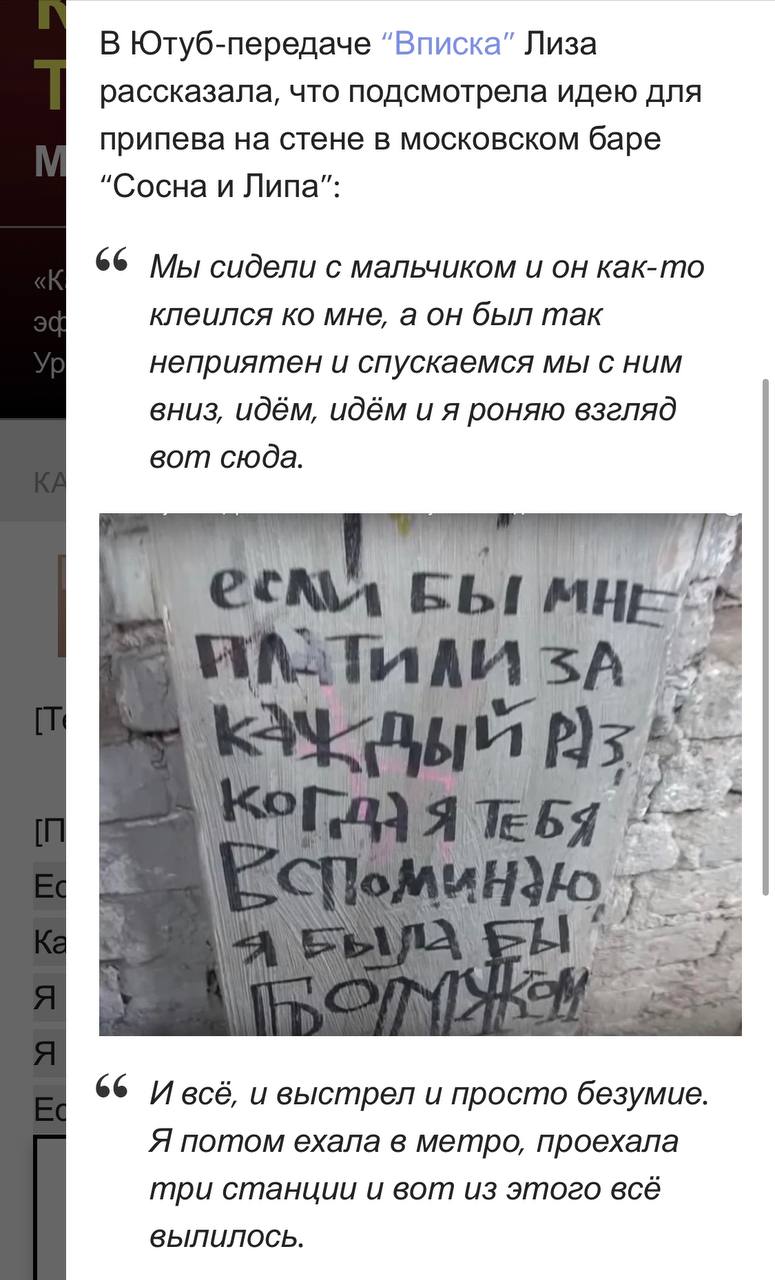 К
Т
М
«К
эф
Ур
КА
[Те
[П
Ес
Ка
Я
Я
Ес
В Ютуб-передаче “Вписка” Лиза
рассказала, что подсмотрела идею для
припева на стене в московском баре
“Сосна и Липа”:
“ Мы сидели с мальчиком и он как-то
клеился ко мне, а он был так
неприятен и спускаемся мы с ним
вниз, идём, идём и я роняю взгляд
вот сюда.
если БЫ МНЕ
ПЛАТИЛИ ЗА
КАЖДЫЙ РАЗ,
КОГДА Я ТЕБЯ
ВСПОМИНАЮ,
Я БЫЛА БЫ
БОМЖОМ
“ И всё, и выстрел и просто безумие.
Я потом ехала в метро, проехала
три станции и вот из этого всё
вылилось.